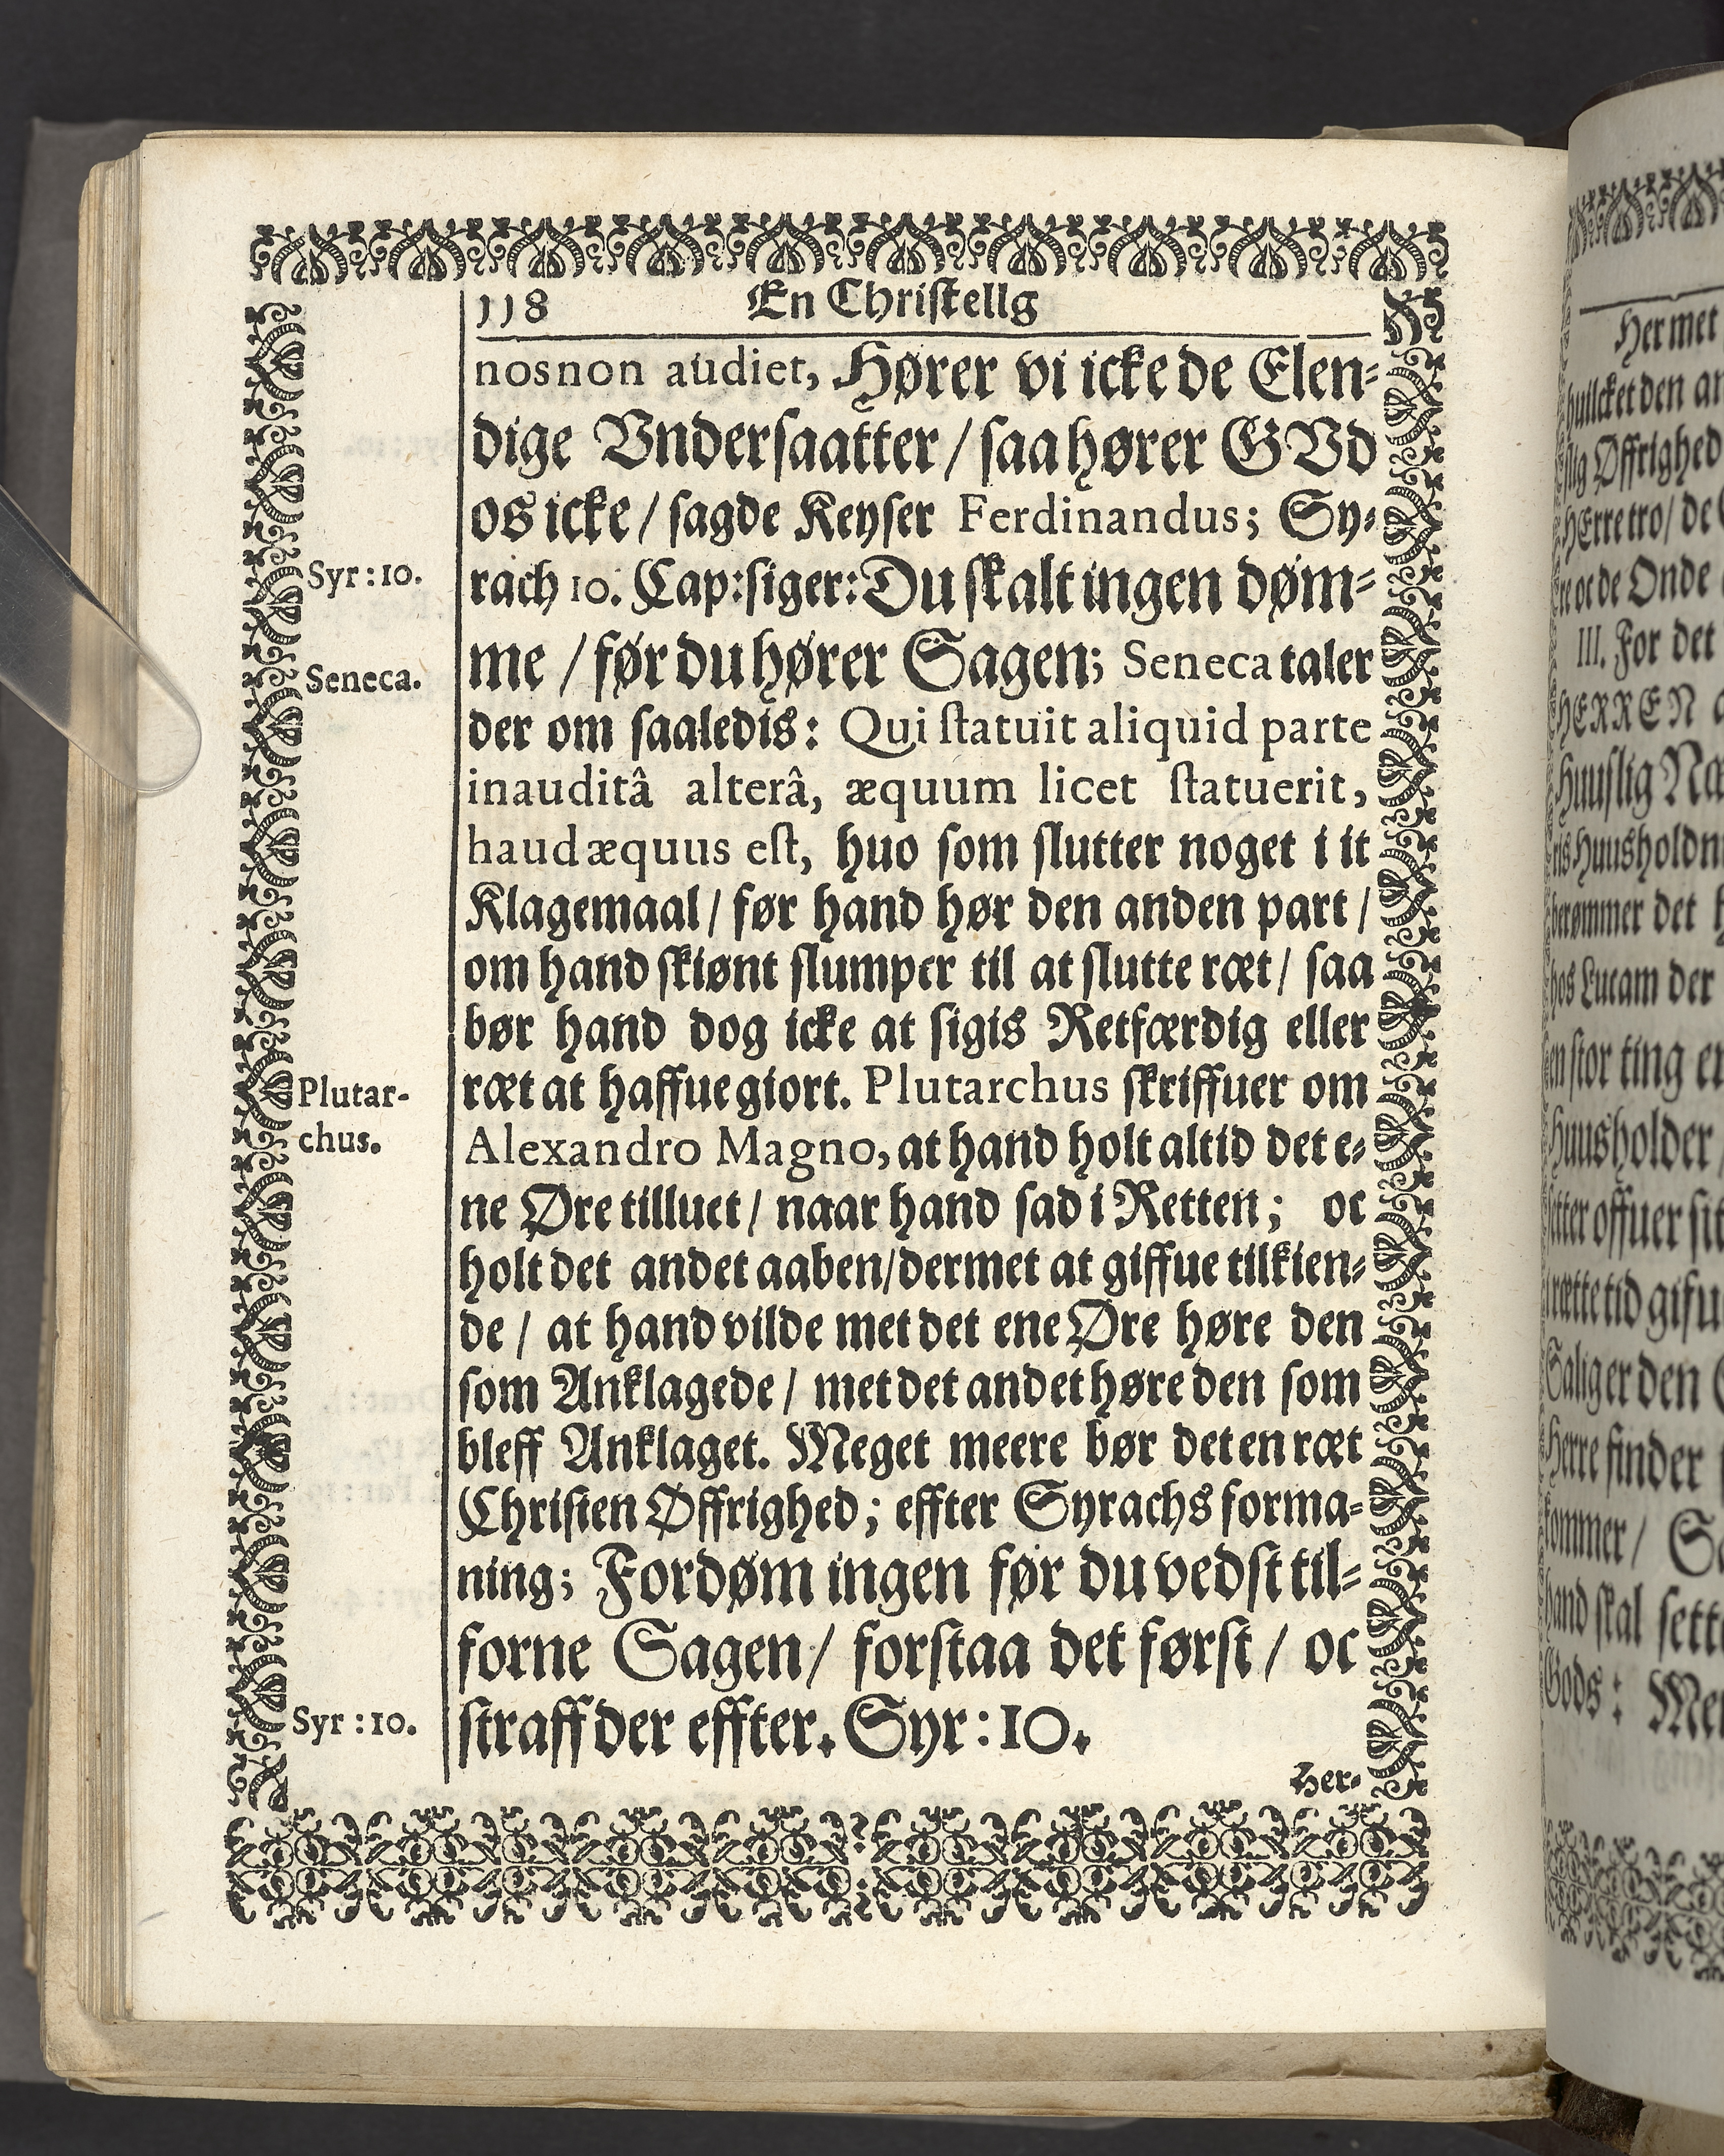 118 En Christellg
nosnon audiet, Hører vi icke de Elen-
dige Vndersaatter / saa hører GVd
os icke / sagde Keyser Ferdinandus; Sy-
Syr: 10.
rach 10. Cap: siger: Du skalt ingen døm-
me / før du hører Sagen; Seneca taler
Seneca.
der om saaledis: Qui statuit aliquid parte
inauditâ alterâ, æquum licet statuerit,
haud æquus est, huo som slutter noget i it
Klagemaal / før hand hør den anden part /
om hand skiønt slumper til at slutte ræt / saa
bør hand dog icke at sigis Retfærdig eller
ræt at haffue giort. Plutarchus skriffuer om
Plutar-
chus.
Alexandro Magno, at hand holt altid det e-
ne Øre tilluct / naar hand sad i Retten; oc
holt det andet aaben / dermet at giffue tilkien-
de / at hand vilde met det ene Øre høre den
som Anklagede / met det andet høre den som
bleff Anklaget. Meget meere bør det en ræt
Christen Øffrighed; effter Syrachs forma-
ning; Fordøm ingen før du vedst til-
forne Sagen / forstaa det først / oc
straff der effter. Syr: 10.
Syr: 10.
Her-
Her met
huilcket den
Øffrighed
HErre tro / de
oc de Onde
III. For det
HERREN
Huuslig
Huusholdn
berømmer det
hos Lucam der
en stor ting er
Huusholder
offuer sit
tid gifu
Salig er den
Herre finder
kommer /
hand skal sett
Gods: Men